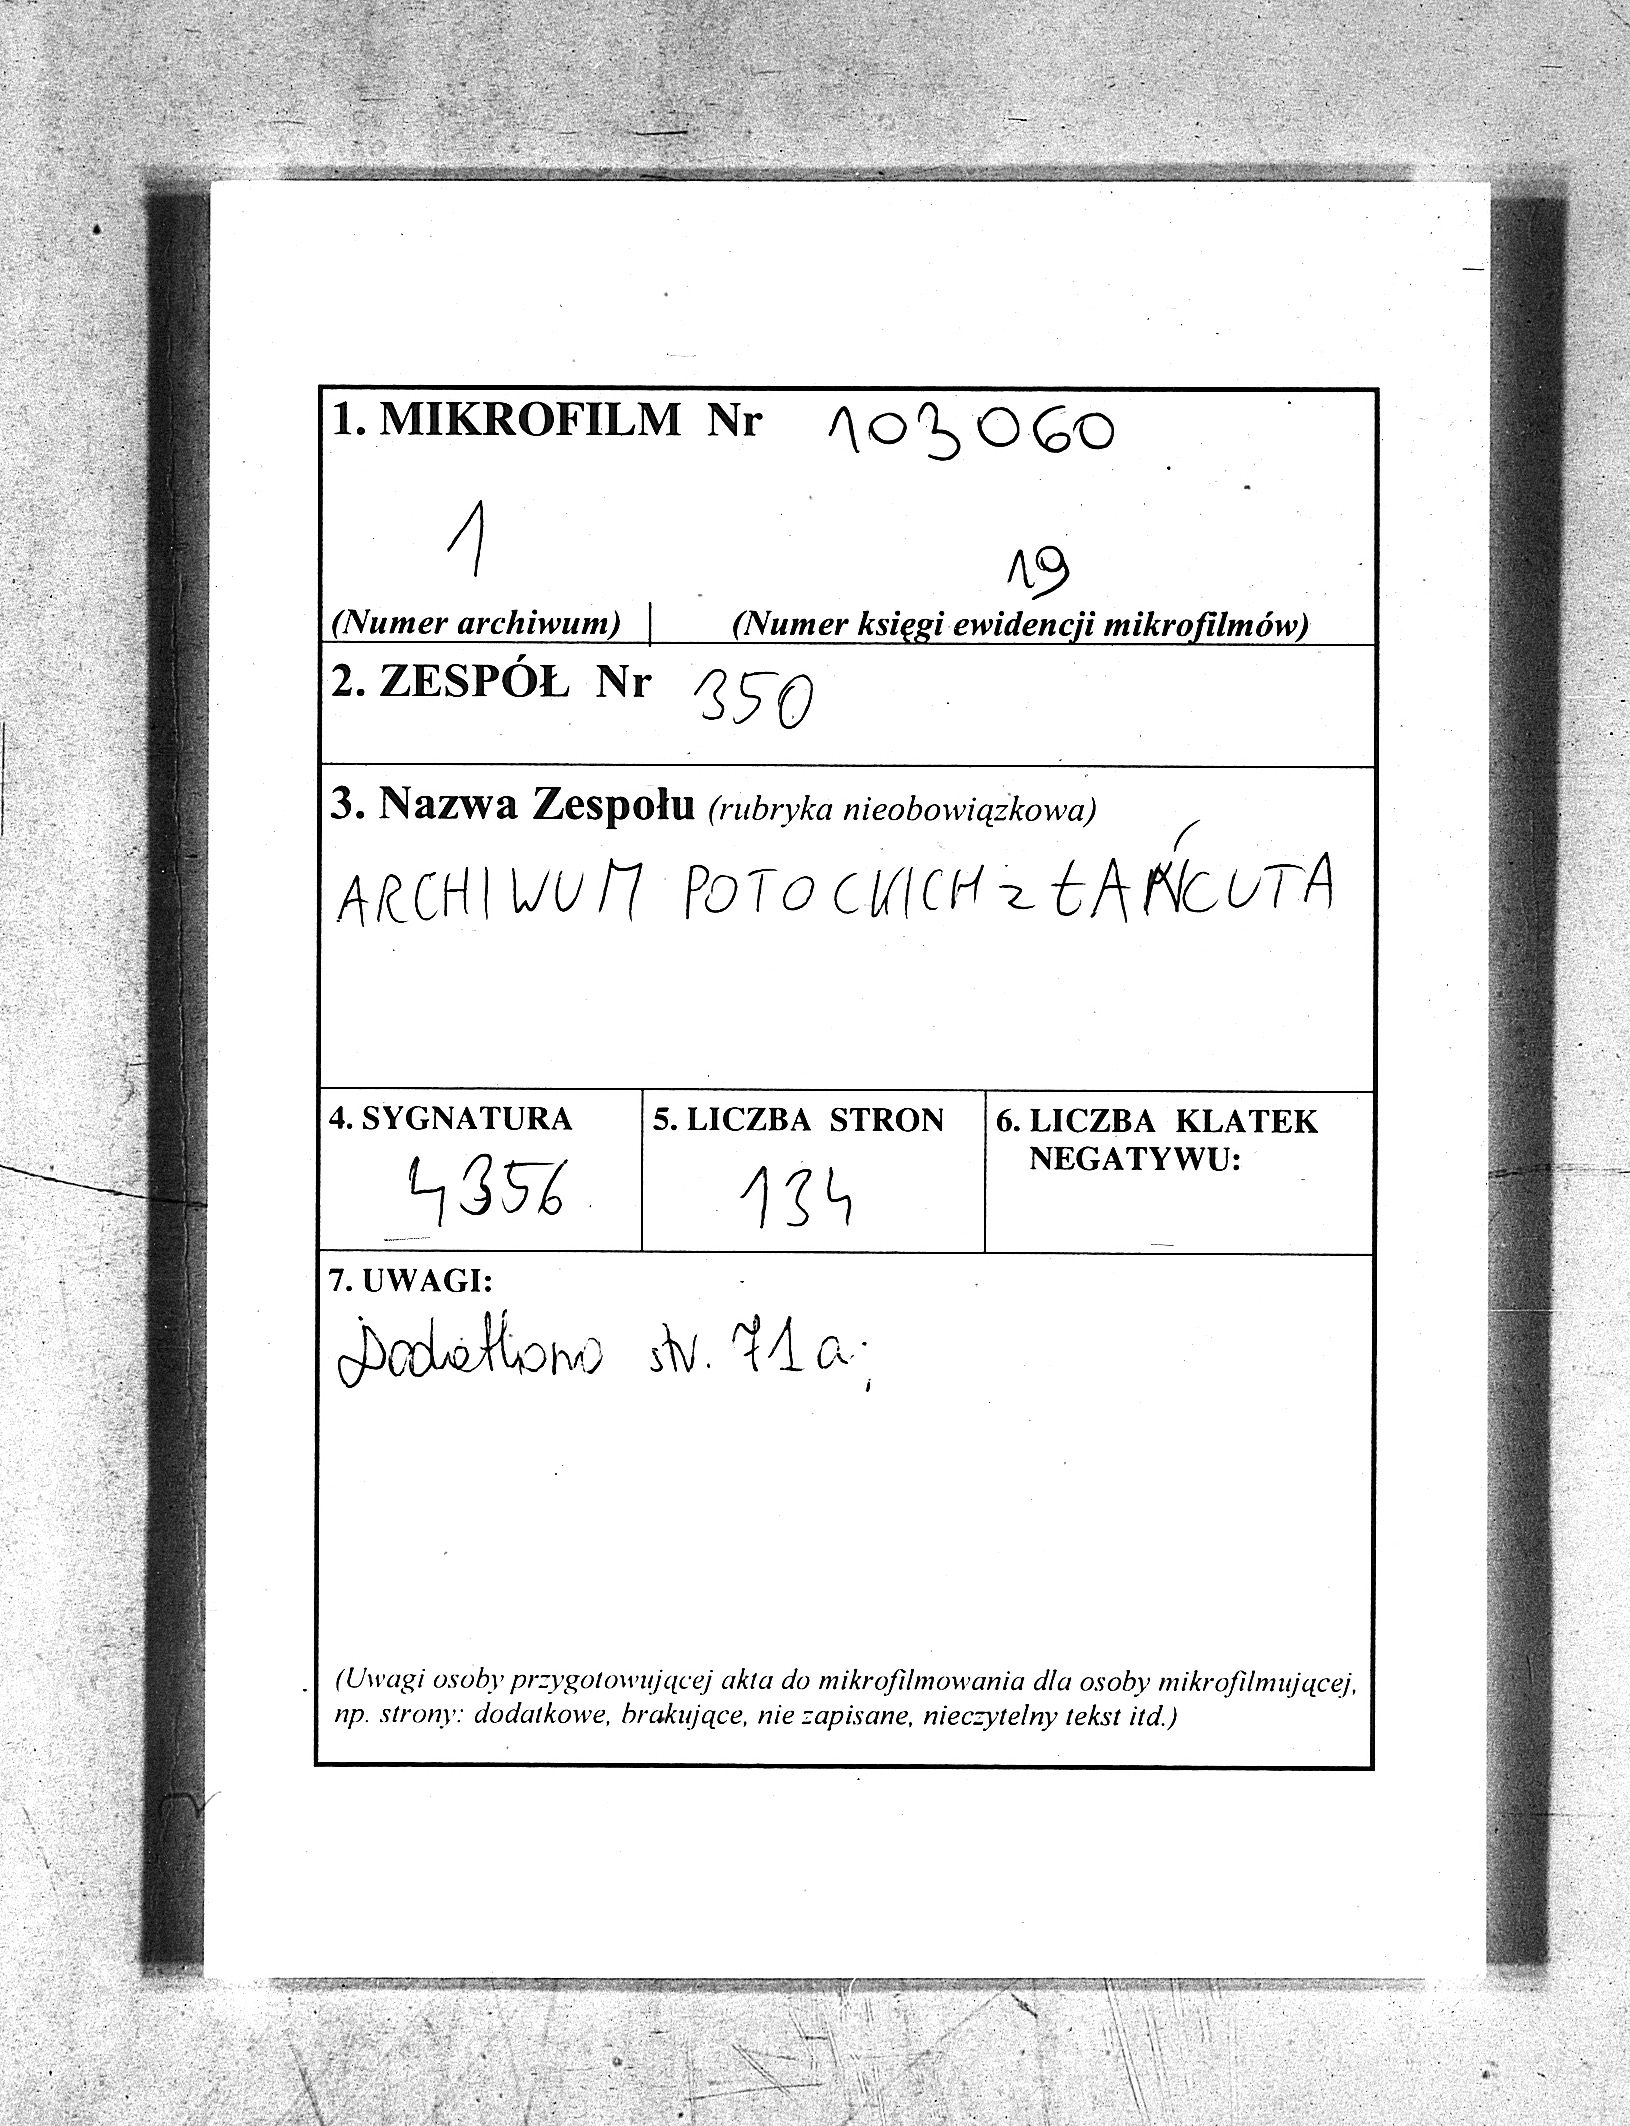 1. MIKROFILM Nr 103060
1 19
(Numer archiwum) (Numer księgi ewidencji mikrofilmów)
2. ZESPÓŁ Nr 350
3. Nazwa Zespołu (rubryka nieobowiązkowa)
ARCHIWUM POTOCKICH z ŁAŃCUTA
4. SYGNATURA 5. LICZBA STRON 6. LICZBA KLATEK
NEGATYWU:
4356 134
7. UWAGI:
str. 71a;
(Uwagi osoby przygotowującej akta do mikrofilmowania dla osoby mikrofilmującej,
np. strony: dodatkowe, brakujące, nie zapisane, nieczytelny tekst itd.)